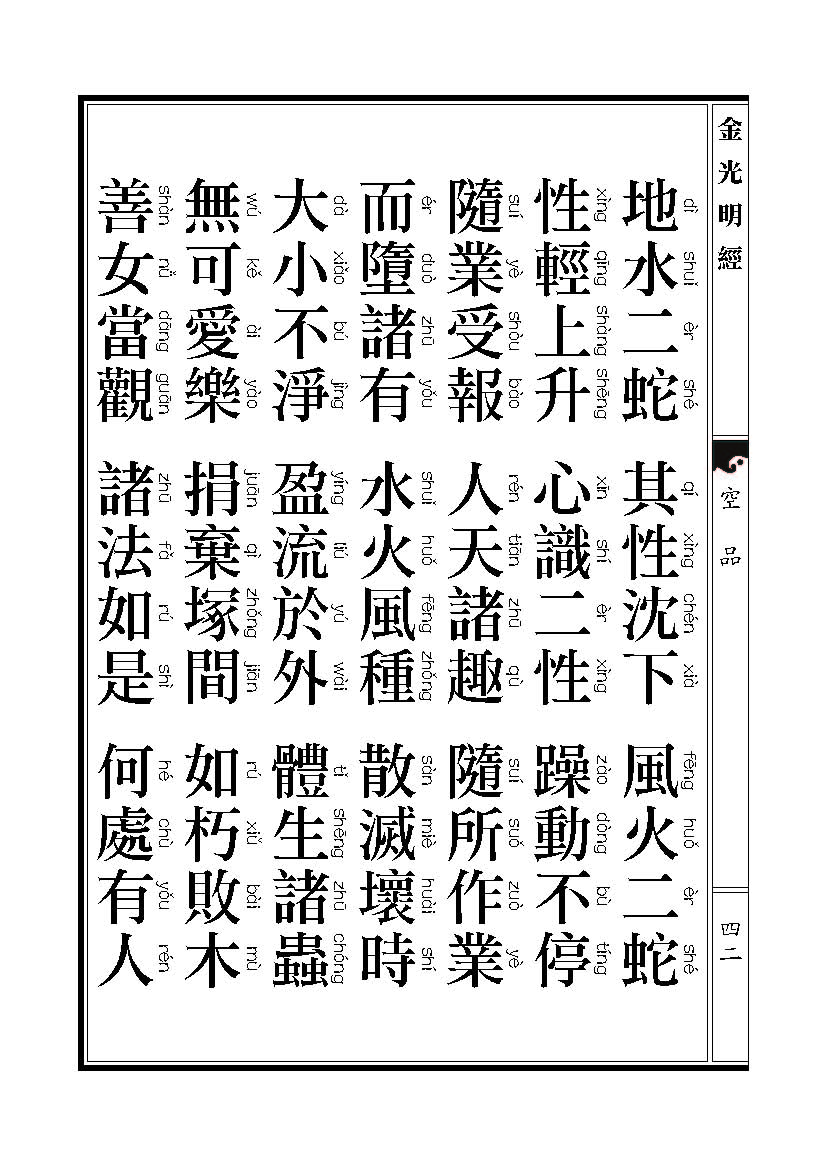 金光明經
空品
四二
地水二蛇 其性沈下 風火二蛇
dì shuǐ èr shé qí xìng chén xià fēng huǒ èr shé
性輕上升 心識二性 躁動不停
xìng qīng shàng shēng xīn shí èr xìng zào dòng bù tíng
隨業受報 人天諸趣 隨所作業
suí yè shòu bào rén tiān zhū qù suí suǒ zuò yè
而墮諸有 水火風種 散滅壞時
ér duò zhū yǒu shuǐ huǒ fēng zhǒng sàn miè huài shí
大小不淨 盈流於外 體生諸蟲
dà xiǎo bú jìng yíng liú yú wài tǐ shēng zhū chóng
無可愛樂 捐棄塚間 如朽敗木
wú kě ài yào juān qì zhǒng jiān rú xiǔ bài mù
善女當觀 諸法如是 何處有人
shàn nǚ dāng guān zhū fǎ rú shì hé chù yǒu rén